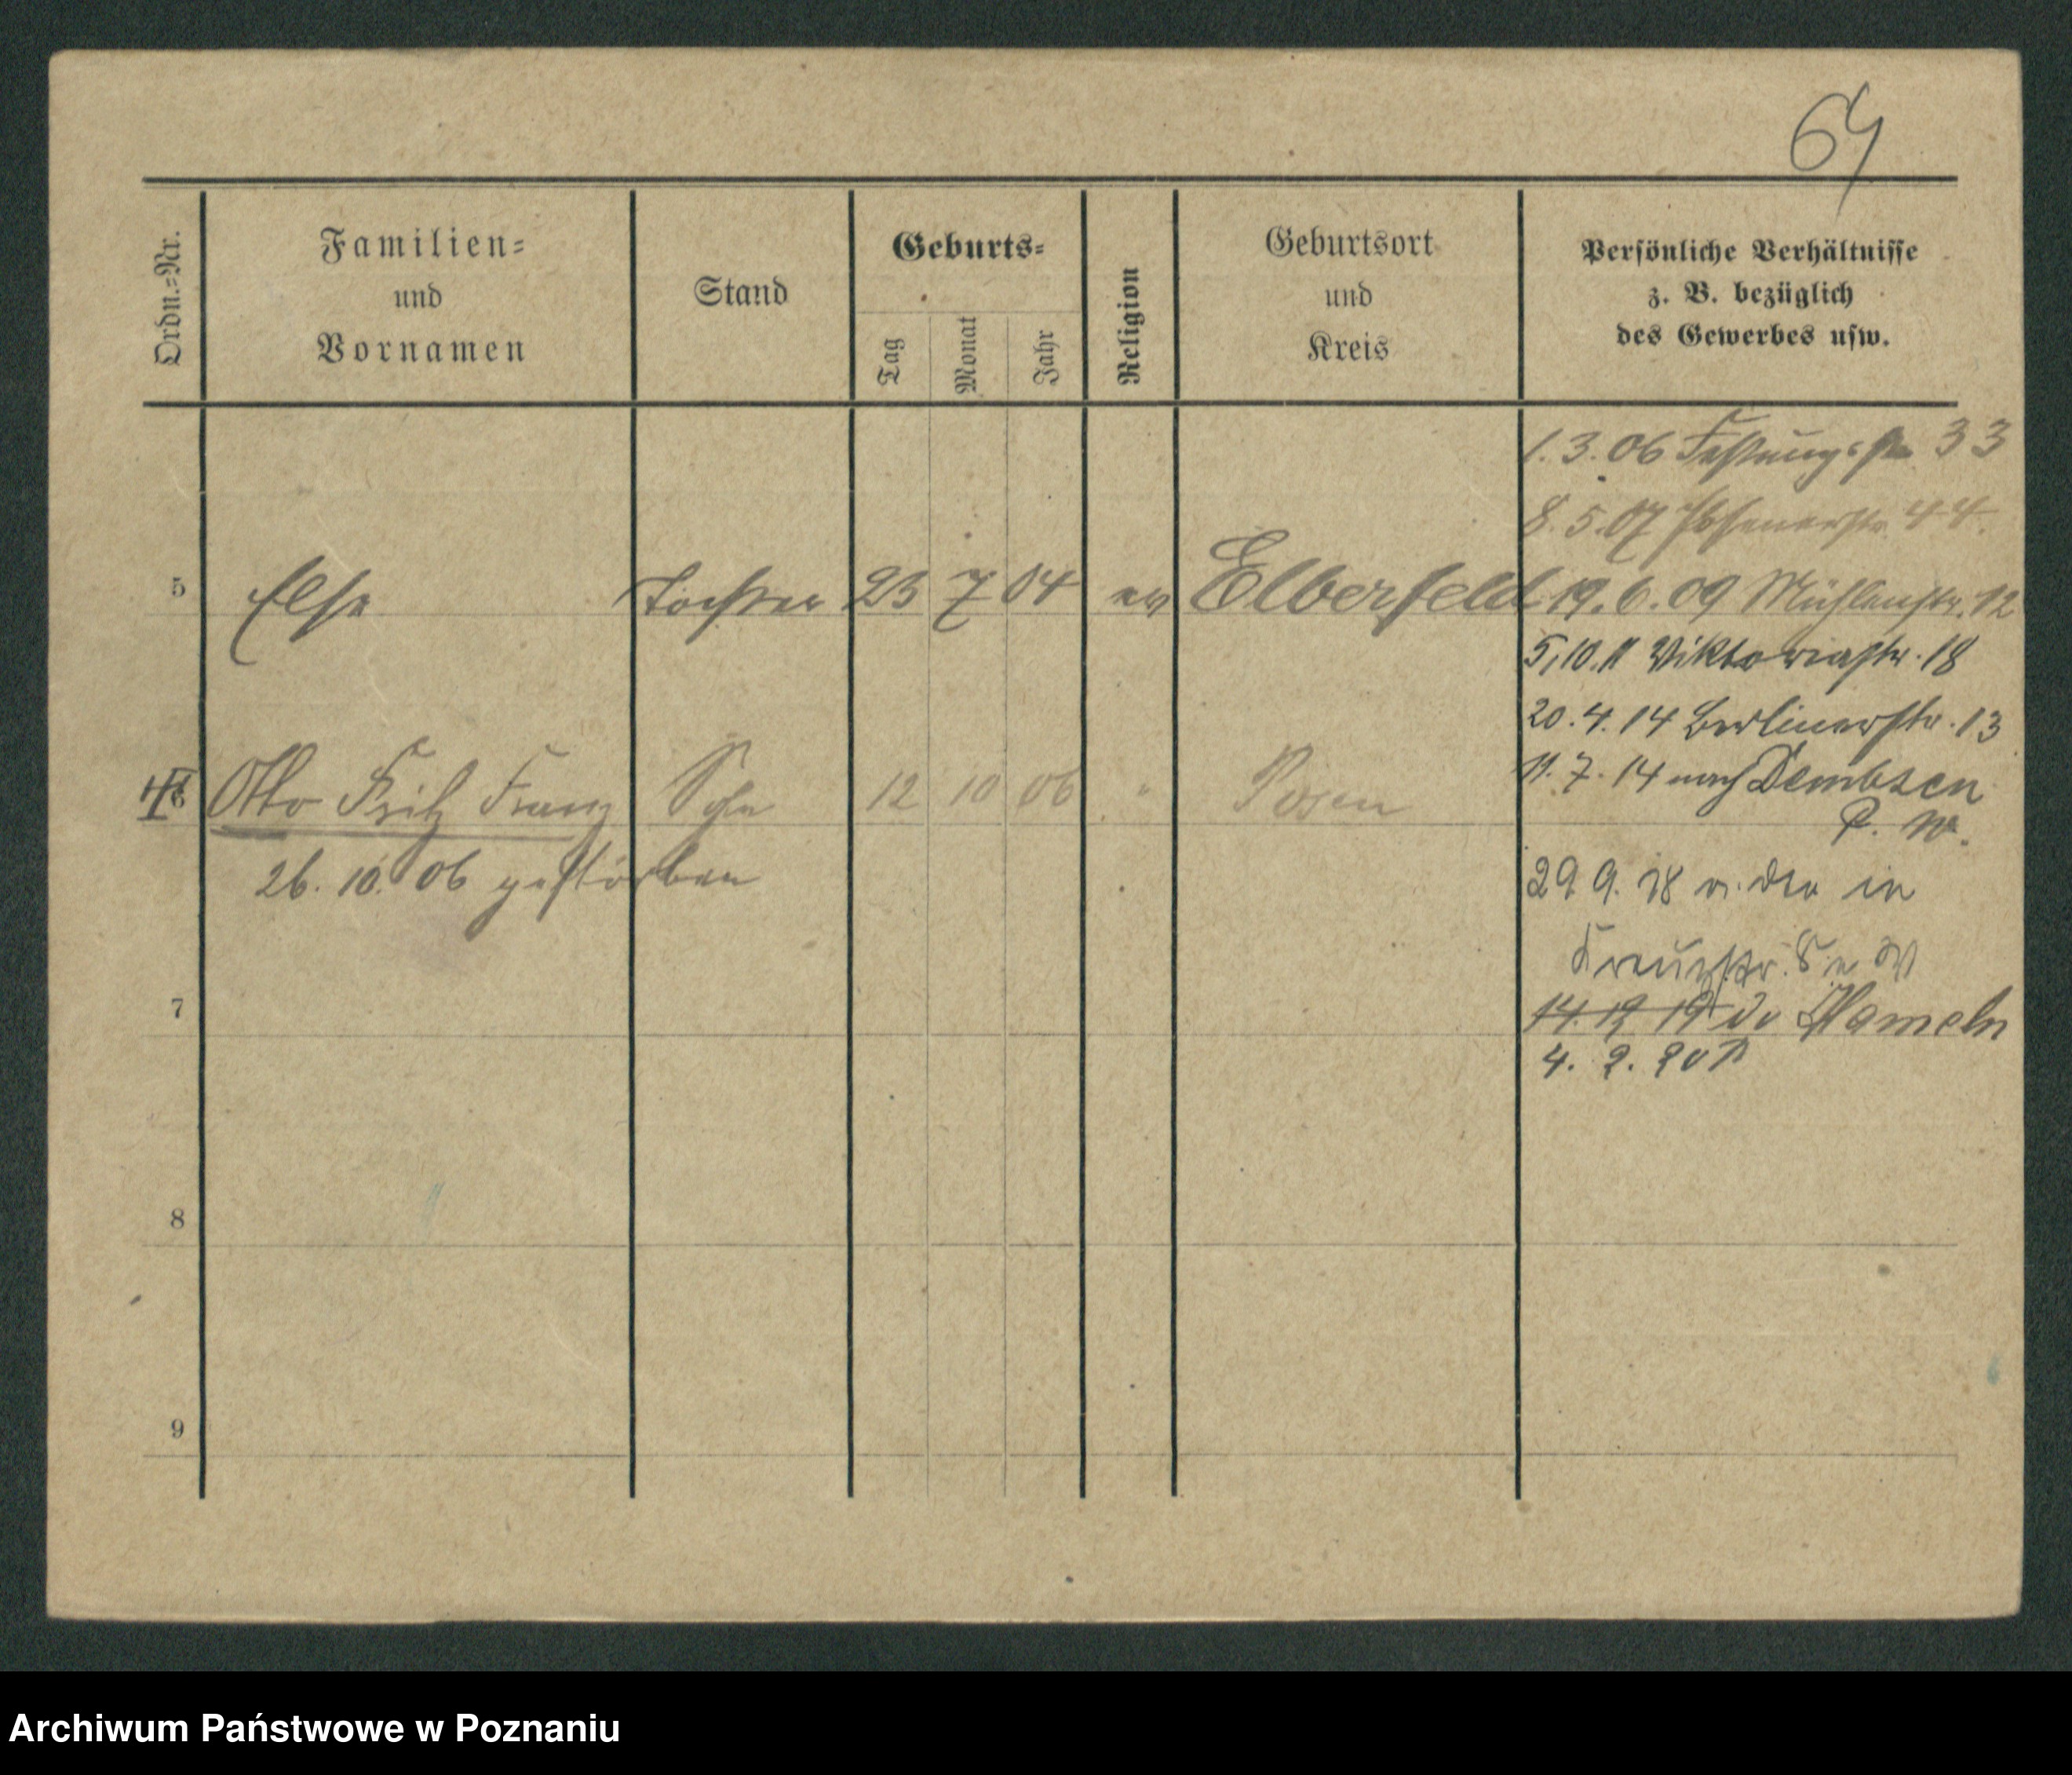 64
Ordn.-Nr.
Familien-
und
Vornamen
Stand
Geburts-
Tag
Monat
Jahr
Religion
Geburtsort
und
Kreis
Persönliche Verhältnisse
z. B. bezüglich
des Gewerbes usw.
1. 3. 06 Festungsstr. 33
8. 5. 07 Posenerstr. 44.
5 Else Tochter 23 7 04 ev Elberfeld 19. 6. 09 Mühlenstr. 12
5,10.11 Viktoriastr. 18
20. 4. 14 Berlinerstr. 13
11. 7. 14 nach Dembsen
P. W.
6 Otto Fritz Franz Sohn 12 10 06 " Posen
26. 10. 06 gestorben
29 9. 18 in
Kreuzstr.
7
14. 12 19 Hameln
4. 2. 20
8
9
Archiwum Państwowe w Poznaniu